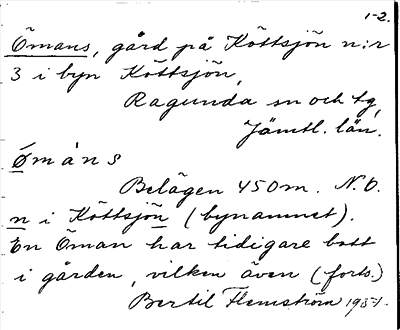 1-2.
Ömans, gård på Köttsjön n:r
3 i byn Köttsjön,
Ragunda sn och tg,
Jämtl. län.
Ømåns
Belägen 450m. N.O.
n i Köttsjön (bynamnet).
En Öman har tidigare bott
i gården, vilken även (forts.)
Bertil Flemström 1951.